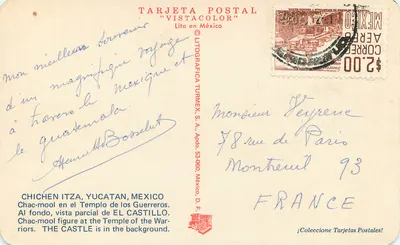 TARJETA POSTAL
"VISTACOLOR"
Lito en México
Mon meilleur souvenir
d'un magnifique voyage
à travers le mexique et
le guatemala
CHICHEN ITZA, YUCATAN, MEXICO
Chac-mool en el Templo de los Guerreros.
Al fondo, vista parcial de EL CASTILLO.
Chac-mool figure at the Temple of the War-
riors. THE CASTLE is in the background.
LITOGRAFICA TURMEX, S.A., Apdo. MEXICO, D.F.
CORREO
AEREO
MEXICO
$2.00
Monsieur
78 rue de Paris
Montreuil 93
FRANCE
¡Coleccione Tarjetas Postales!